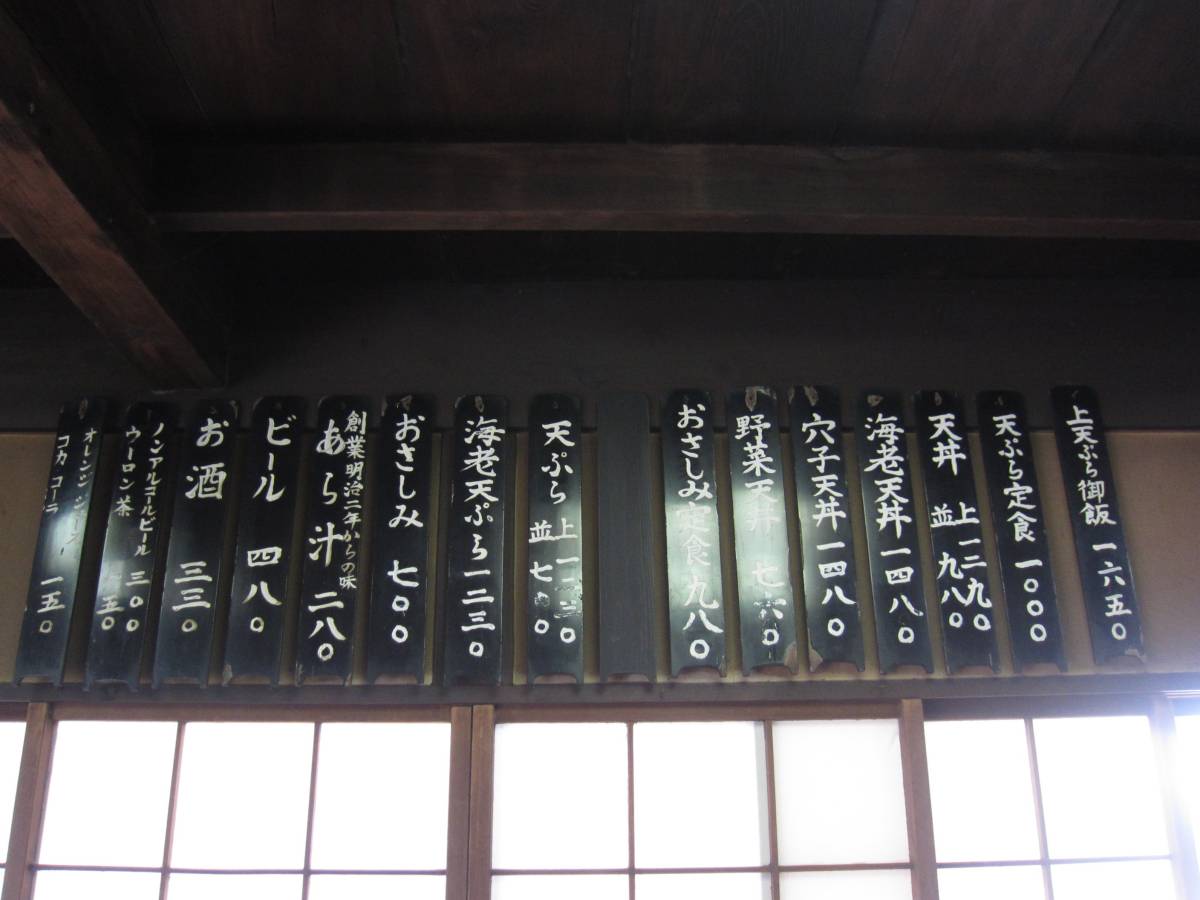 上天ぷら御飯 一六五〇
天ぷら定食 一〇〇〇
天丼
上 一二九〇
並 九八〇
海老天丼 一四八〇
穴子天丼 一四八〇
野菜天丼 七六〇
おさしみ定食 九八〇
天ぷら
上
並 七〇〇
海老天ぷら 一二三〇
おさしみ 七〇〇
創業明治二年からの味
あら汁 二八〇
ビール 四八〇
お酒 三三〇
ノンアルコールビール 三〇〇
ウーロン茶
オレンジジュース
コカ コーラ
一五〇